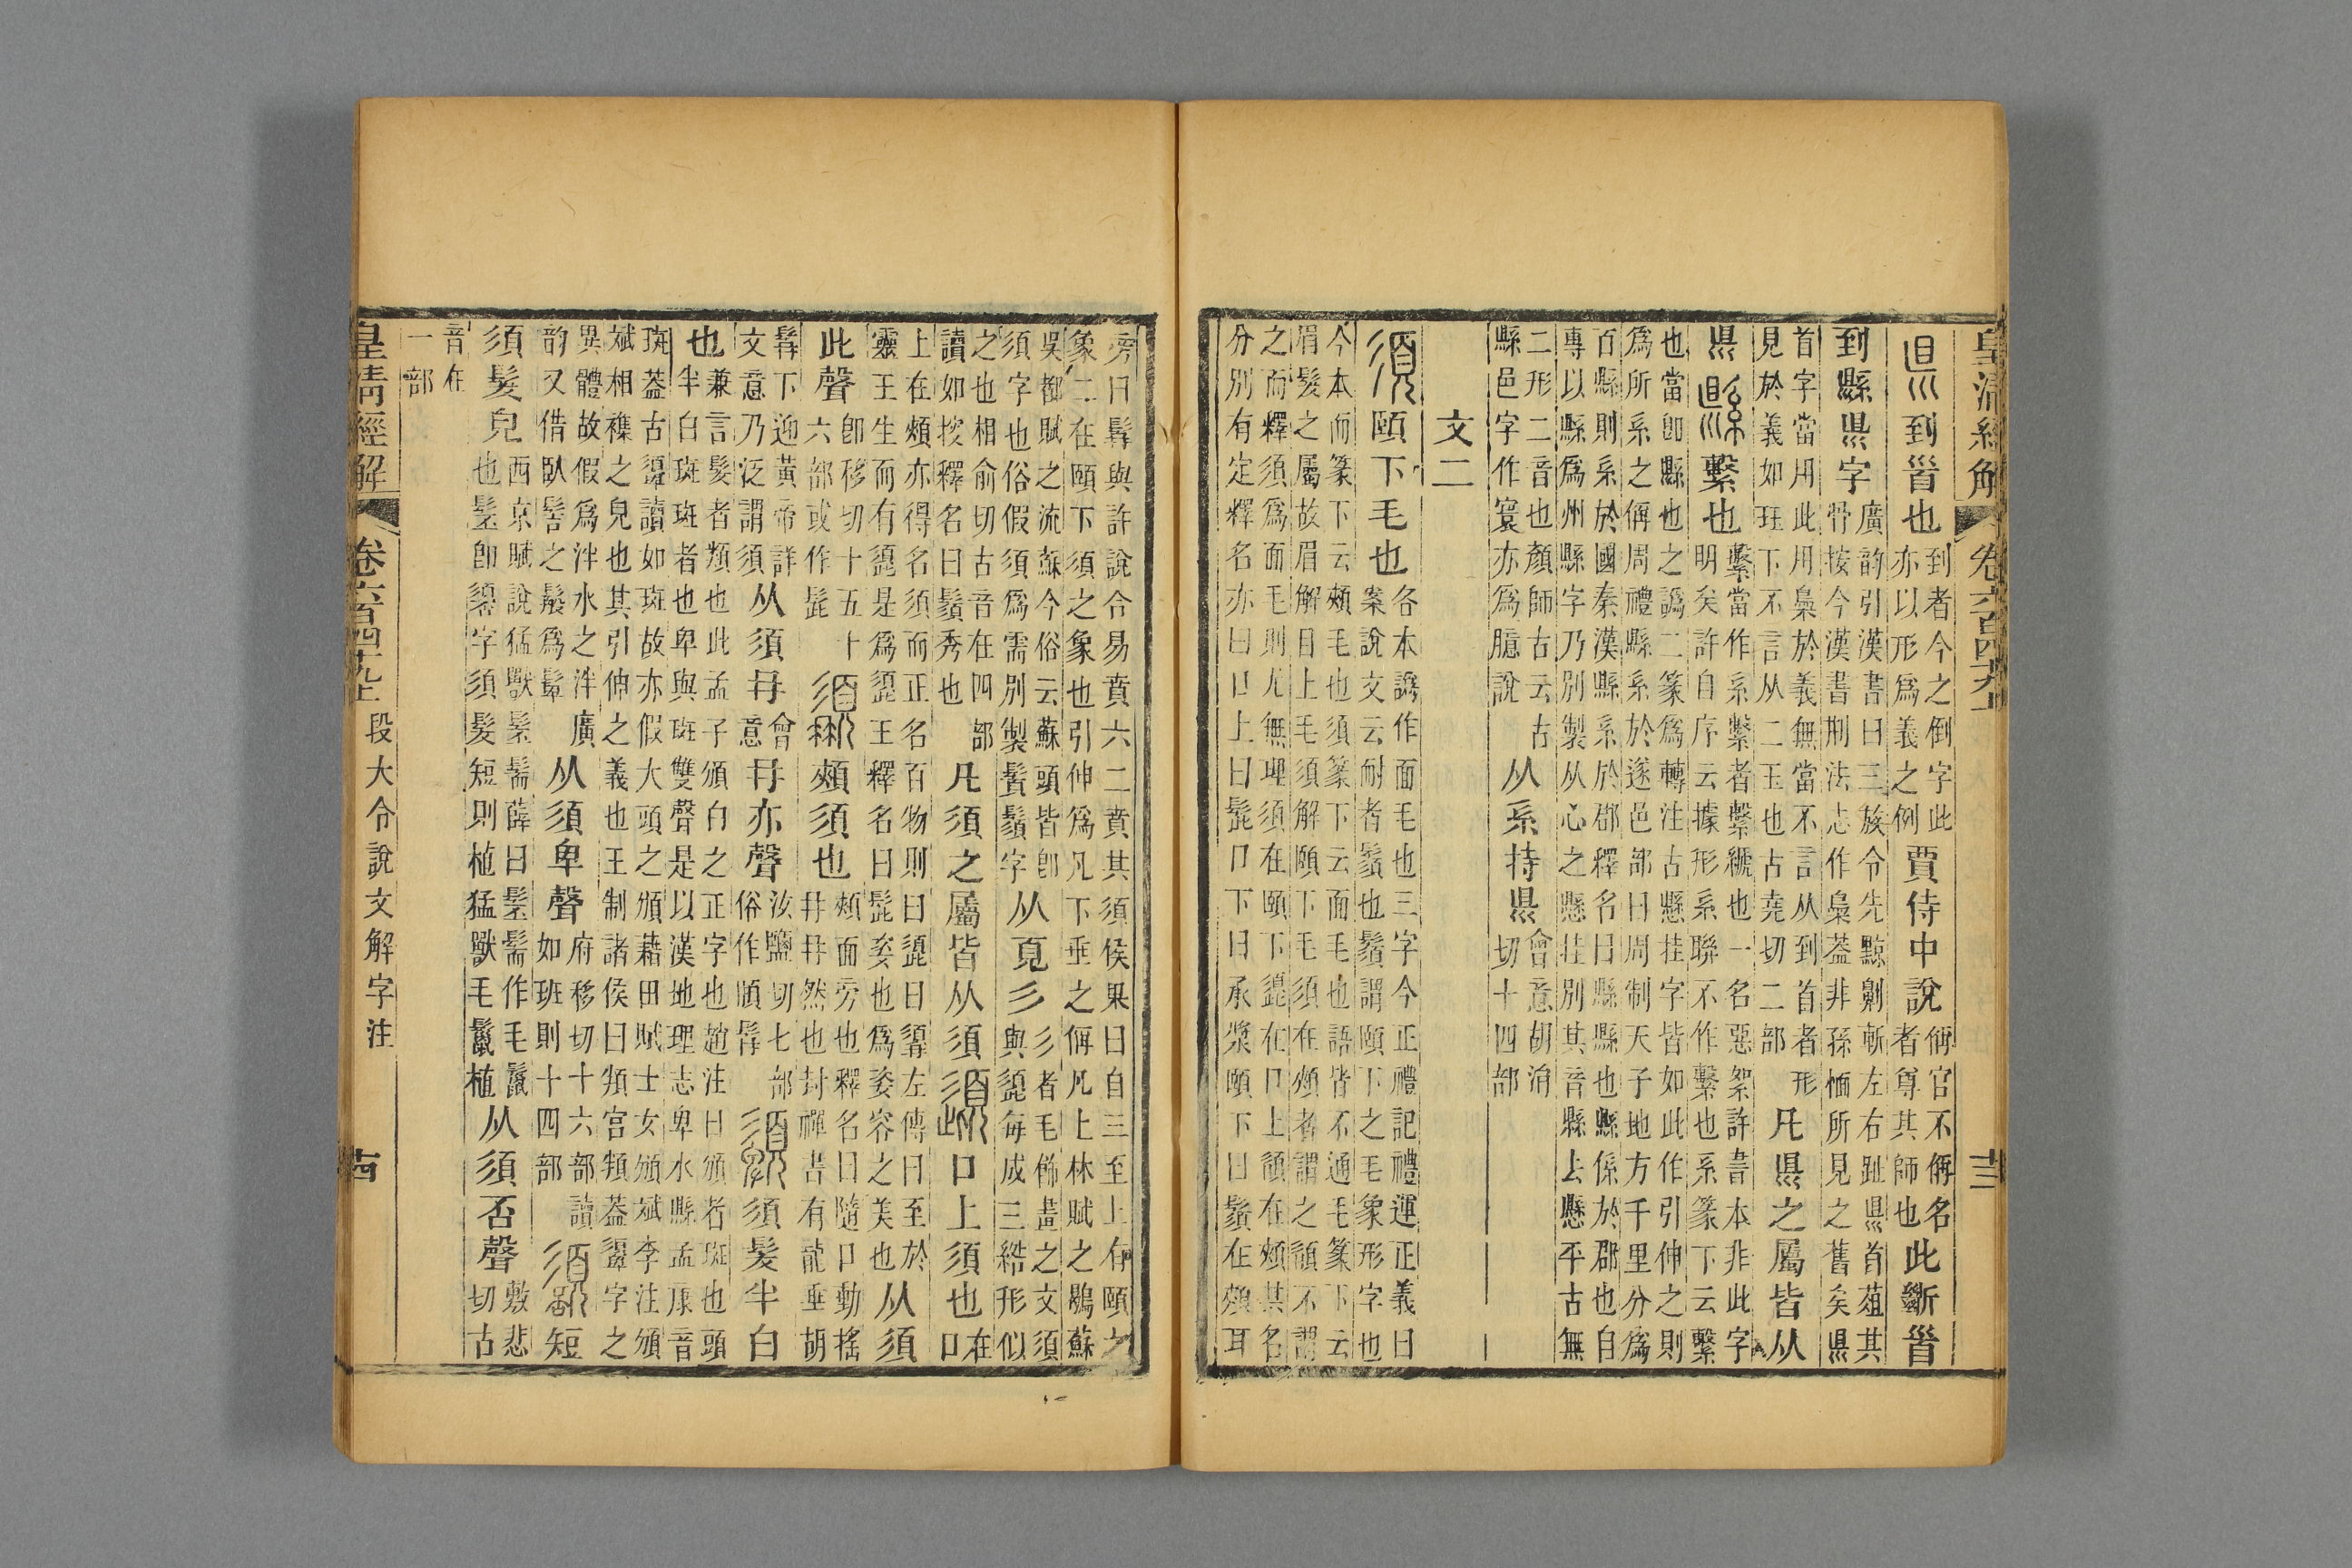 皇清經解 卷六百四十九上 十三
𥄉 到𩠐也 到者今之倒字此
亦以形爲義之例 賈侍中說 偁官不偁名
者尊其師也 此斷𩠐
到縣𥄉字 廣韵引漢書曰三族令先黥劓斬左右趾𥄉首葅其
骨按今漢書刑法志作梟葢非孫愐所見之舊矣𥄉
首字當用此用梟於義無當不言从到首者形
見於義如珏下不言从二玉也古堯切二部 凡𥄉之屬皆从
𥄉 縣 繫也 繫當作系繫者繫𦃇也一名惡絮許書本非此字
明矣許自序云據形系聯不作繫也系篆下云繫
也當卽縣也之譌二篆爲轉注古懸挂字皆如此作引伸之則
爲所系之偁周禮縣系於遂邑部曰周制天子地方千里分爲
百縣則系於國秦漢縣系於郡釋名曰縣係也縣係於郡也自
專以縣爲州縣字乃別製从心之懸挂別其音縣去懸平古無
二形二音也顏師古云古
縣邑字作寰亦爲臆說 从系持𥄉 會意胡涓
切十四部
文二
須 頤下毛也 各本譌作面毛也三字今正禮記禮運正義曰
案說文云耐者鬚也鬚謂頤下之毛象形字也
今本而篆下云頰毛也須篆下云面毛也語皆不通毛篆下云
眉髮之屬故眉解目上毛須解頤下毛須在頰者謂之䫇不謂
之而釋須爲面毛則尤無理須在頤下𩑺在口上䫇在頰其名
分別有定釋名亦曰口上曰髭口下曰承漿頤下曰鬚在頰耳
旁曰髥與許說合易賁六二賁其須侯果曰自三至上有頤之
象二在頤下須之象也引伸爲凡下垂之偁凡上林賦之鶡蘇
吳都賦之流蘇今俗云蘇頭皆卽
須字也俗假須爲需別製鬢鬚字 从頁彡 彡者毛飾畫之文須
與𩑺每成三綹形似
之也相俞切古音在四部
讀如按釋名曰鬚秀也 凡須之屬皆从須 𩑺 口上須也 在
口
上在頰亦得名須而正名百物則曰𩑺曰 左傳曰至於
靈王生而有𩑺是爲𩑺王釋名曰髭姿也爲姿容之美也 从須
此聲 卽移切十五十
六部或作髭 䫇 頰須也 頰面旁也釋名曰隨口動搖
冄冄然也封禪書有龍垂胡
髥下迎黃帝詳
文意乃泛謂須 从須冄 會
意 冄亦聲 汝鹽切七部
俗作 髥 須髮半白
也 兼言髮者類也此孟子頒白之正字也趙注曰頒者斑也頭
半白斑斑者也卑與斑雙聲是以漢地理志卑水縣孟康音
斑葢古 讀如斑故亦假大頭之頒藉田賦士女頒斌李注頒
斌相襍之皃也其引伸之義也王制諸侯曰頖宮頖葢 字之
異體故假爲泮水之泮廣
韵又借臥髻之 爲 从須卑聲 府移切十六部讀
如班則十四部 短
須髮皃 西京賦說猛獸髬髵薛曰髬髵作毛鬣
也髬卽 字須髮短則植猛獸毛鬣植 从須否聲 敷悲
切古
音在
一部
皇清經解 卷六百四十九上 段大令說文解字注 十四